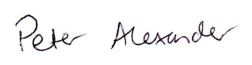 Peter Alexander